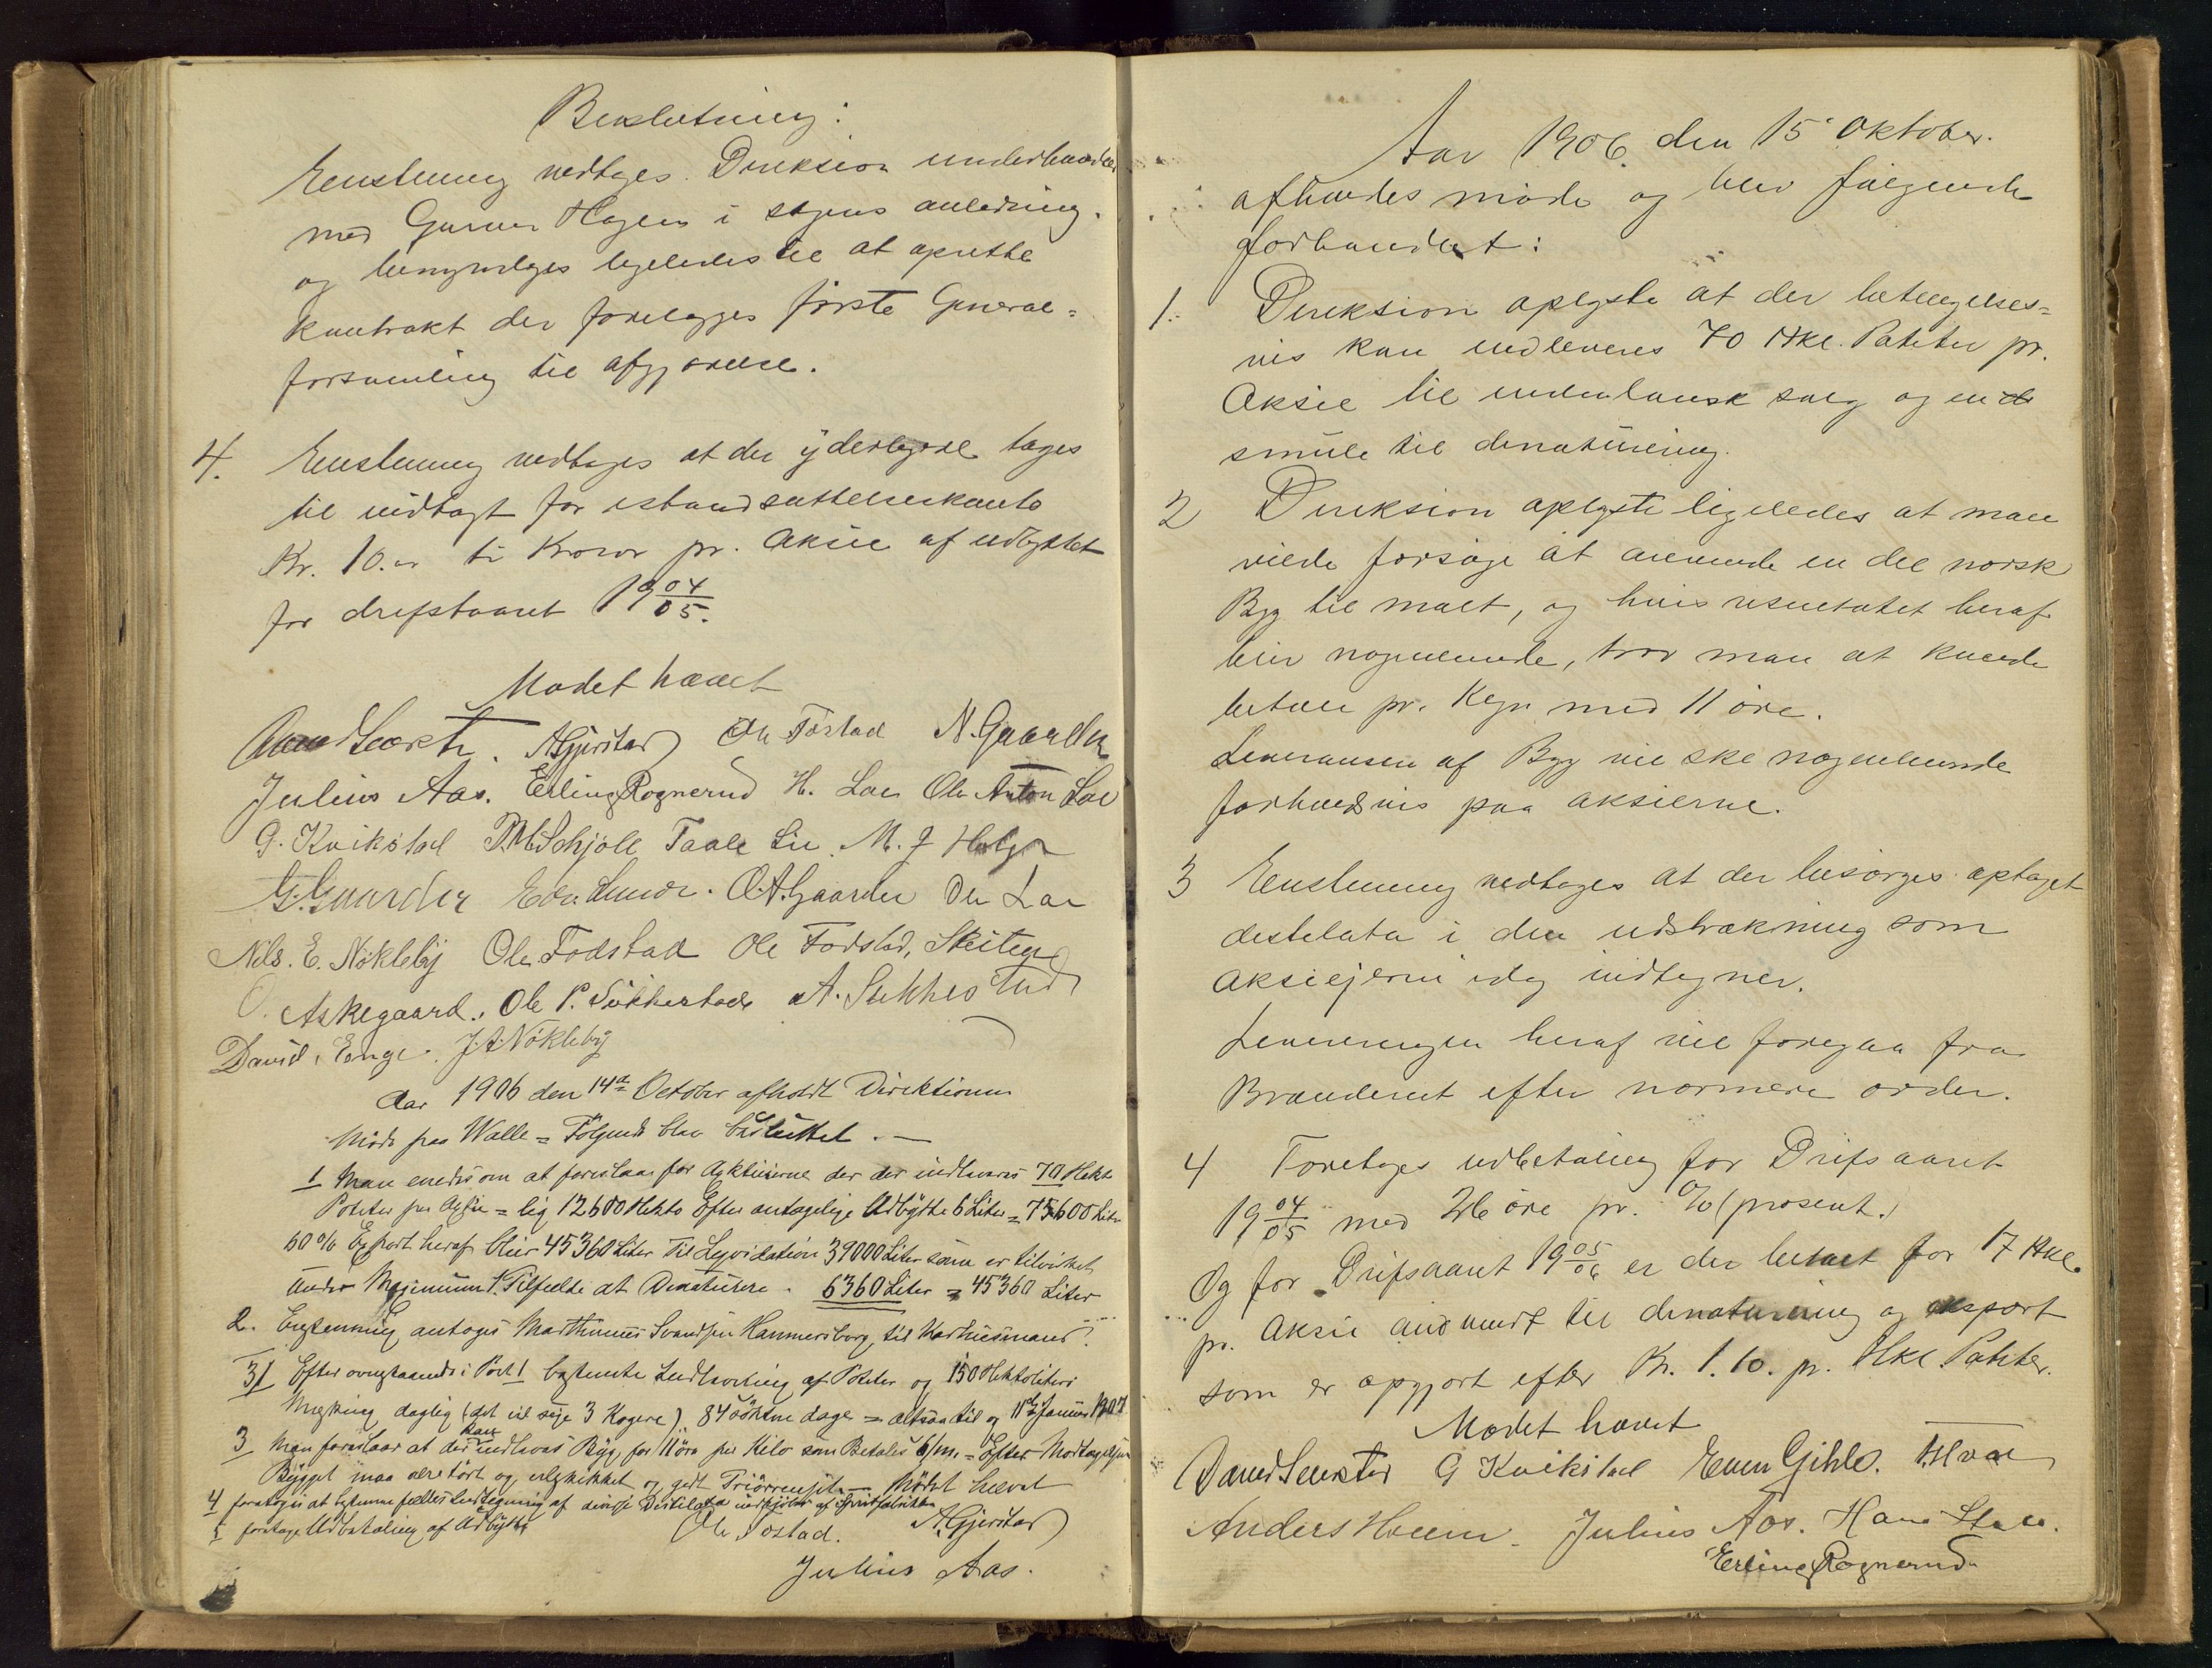 Beslutning:
Enstemmig vedtages. Direksion underhandler
med Gunner Hagen i sagens anledning.
og bemyndiges ligeledes til at oprette
kontrakt der forelægges første General=
forsamling til afgjørelse.
4. Enstemmig vedtages at der yderligere tages
til indtægt for istandsættelseskonto
Kr. 10.- ti Kroner pr. Aksie af udbyttet
for drifstaaret 19 04/05.
Mødet hævet
A. Gjerstad Ole Fostad N. Gaarder
Julius Aas. Erling Rognerud H. Loe Ole Anton Loe
G. Kvikstad P. M. Schjøll Taale Lie. M. J
G. Gaarder O. A. Gaarder Ole Loe
Nils. E. Nøkleby Ole Fodstad Ole Fodstad,
O. Askegaard. Ole P. Sukkestad A. Sukkestad
David. Enge. J. A. Nøkleby
Aar 1906 den 14de October afholdt Direktionen
Møde paa Walle = Følgende blev besluttet. —
1 Man enedes om at foreslaa for Agktierne der der indleveres 70 Hekt
Poteter per Agtie = lig 12600 Hekto Efter antagelige Udbytte 6 Liter = 75600 Liter
60% Export heraf blir 45360 Liter Til Leqvidation 39000 Liter som er tilvirket
under Maximum. Tilfelde at Denaturere. 6360 Liter = 45360 Liter
2. Enstemmig antoges Marthinus Svendsen Hammersborg, til
3/ Efter ovenstaaende i Post 1 bestemte Indlevering af Poteter og 150 Hektoliters
Meskning daglig (det vil sige 3 Kogere), 84 søkne dage = altsaa til og 11te Januar 1907
3 Man foreslaar at der kan indleveres Byg for 11 øre per Kilo som Betales 6/m. = Efter Modtagelsen
Bygget maa være tørt og velskikket og godt Triørrenset. — Mødet hævet
4 foretoges at bestemme fælles Indtegning af diverse Destilata
5 foretage Udbetaling af Udbytte
Ole Fostad. A. Gjerstad
Julius Aas.
Aar 1906. den 15 Oktober.
afholdes møde og blev følgende
forhandlet:
1. Direksion oplyste at der betingelses=
vis kan indleveres 70 Hkl. Poteter pr.
Aksie til indenlansk salg og en
smule til denaturering.
2 Direksion oplyste ligeledes at man
vilde forsøge at anvende en del norsk
Byg til malt, og hvis resultatet heraf
blir nogenlunde, tror man at kunde
betale pr. Kgr. med 11 øre.
Leveransen af Byg vil ske nogenlunde
forholdsvis paa aksierne.
3 Enstemmig vedtages at der besørges optaget
destilata i den udstrækning som
aksiejerne idag indtegner.
Leveringen heraf vil foregaa fra
Brænderiet efter nærmere order.
4 Foretoges udbetaling for Drifsaaret
19 04/05 med 26 øre pr. % (prosent.)
Og for Drifsaaret 19 05/06 er der betalt for 17 Hkl.
pr. Aksie anvendt til denaturering og eksport
som er opgjort efter Kr. 1.10. pr. Hkl. Poteter.
Mødet hævet
G Kvikstad Even Gihle.
Anders Hoem. Julius Aas. Hans
Erling Rognerud